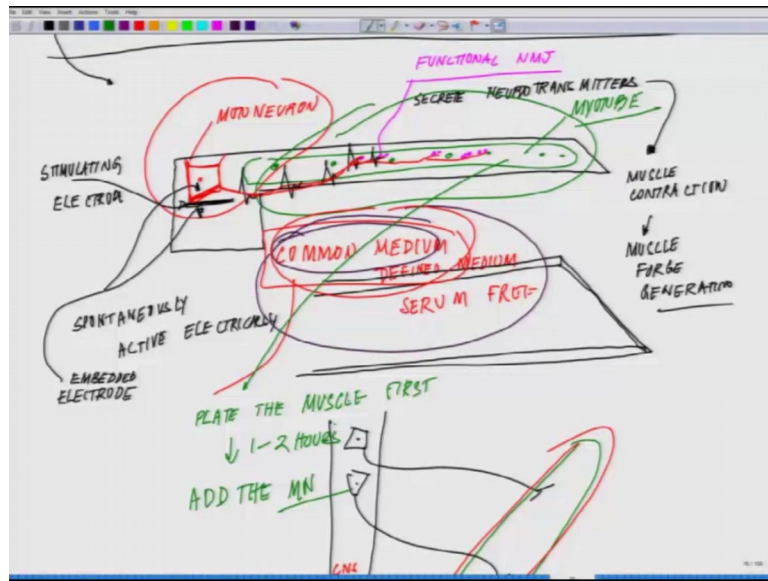 FUNCTIONAL NMJ
SECRETE NEUROTRANSMITTERS
MOTONEURON
MYOTUBE
STIMULATING
ELECTRODE
MUSCLE
CONTRACTION
MUSCLE
FORCE
GENERATION
COMMON MEDIUM
DEFINED MEDIUM
SERUM FREE
SPONTANEOUSLY
ACTIVE ELECTRICALLY
EMBEDDED
ELECTRODE
PLATE THE MUSCLE FIRST
1-2 HOURS
ADD THE MN